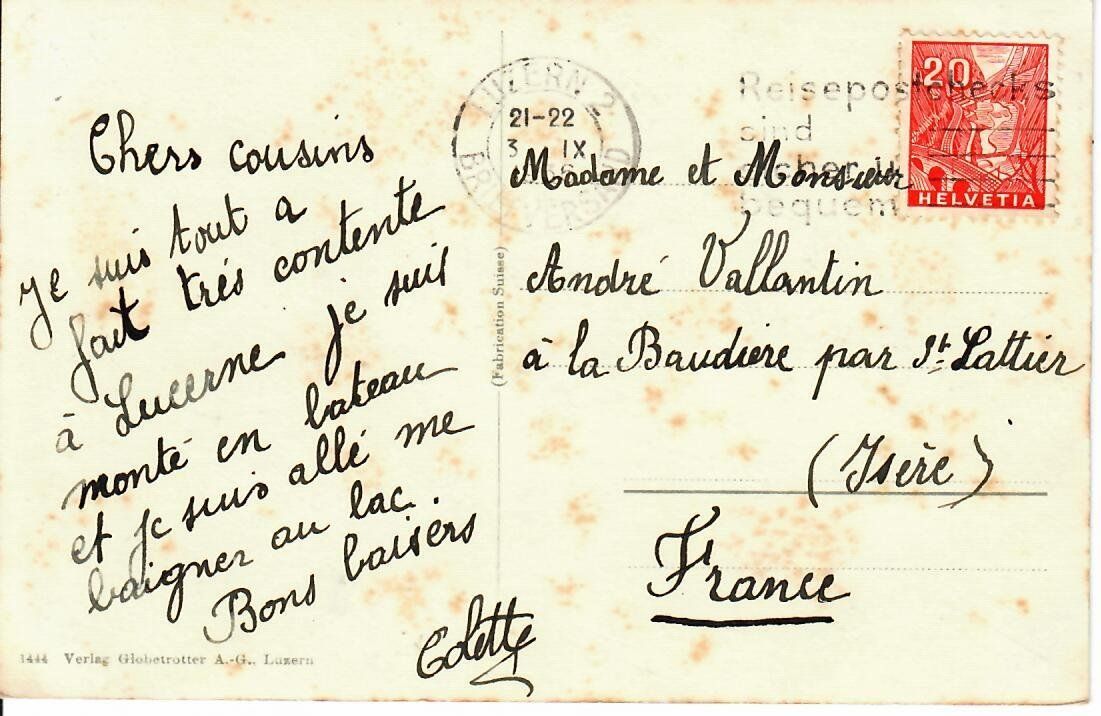 Chers cousins
Je suis tout a
fait trés contente
à Lucerne je suis
monté en bateau
et je suis allé me
baigner au lac.
Bons baisers
Colette
1444 Verlag Globetrotter A.-G., Luzern
(Fabrication Suisse)
LUZERN 2
21-22
3 IX
Reisepostchecks
sind
sicher u
bequem
20
HELVETIA
Madame et Monsieur
André Vallantin
à la Baudiere par St. Lattier
(Isère)
France